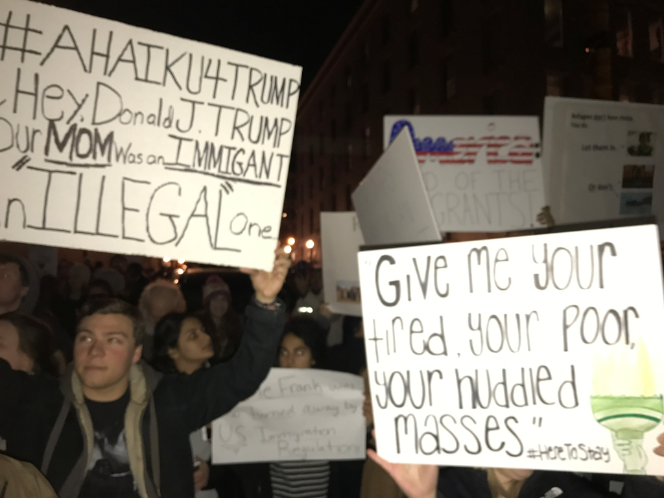 #AHAIKU4TRUMP
Hey, Donald J. TRUMP
our MOM was an IMMIGANT
"ILLEGAL" One
America
OF THE
GRANTS!
Refugees
Let them in
Or don't
"GIVE ME YOUR
tired, your poor,
your huddled
masses"
#HereToStay
Frank was
turned away by
US Immigration
Regulation